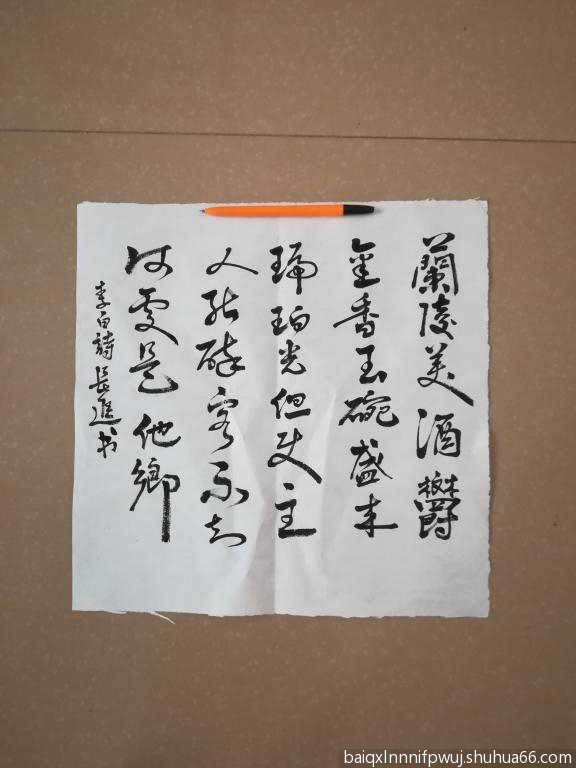 蘭陵美酒鬱
金香玉碗盛来
琥珀光但使主
人能醉客不知
何處是他鄉
李白詩長進书
baiqxlnnnifpwuj.shuhua66.com